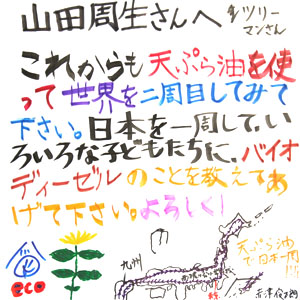 山田周生さんへ
ツリー
マンさん
これからも天ぷら油を使
って世界を二周目してみて
下さい。日本を一周して、い
ろいろな子どもたちに、バイオ
ディーゼルのことを教えてあ
げて下さい。よろしく!
九州
天ぷら油
で日本一周
!!!
eco